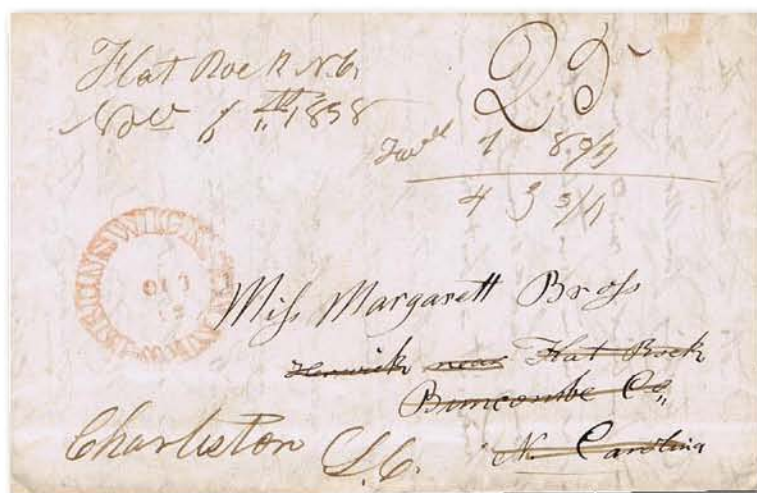 Flat Rock N.C.
Nov 6 1838
25
Forwd 18 3/4
43 3/4
NEW-BRUNSWICK N.J.
OCT
Miss Margarett Bross
near Flat Rock
Buncombe Co,
N. Carolina
Charleston S.C.